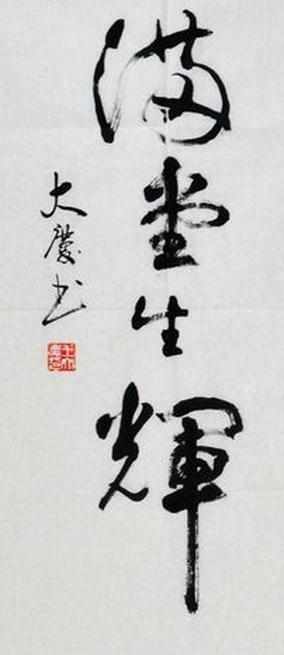 满堂生輝
大慶书